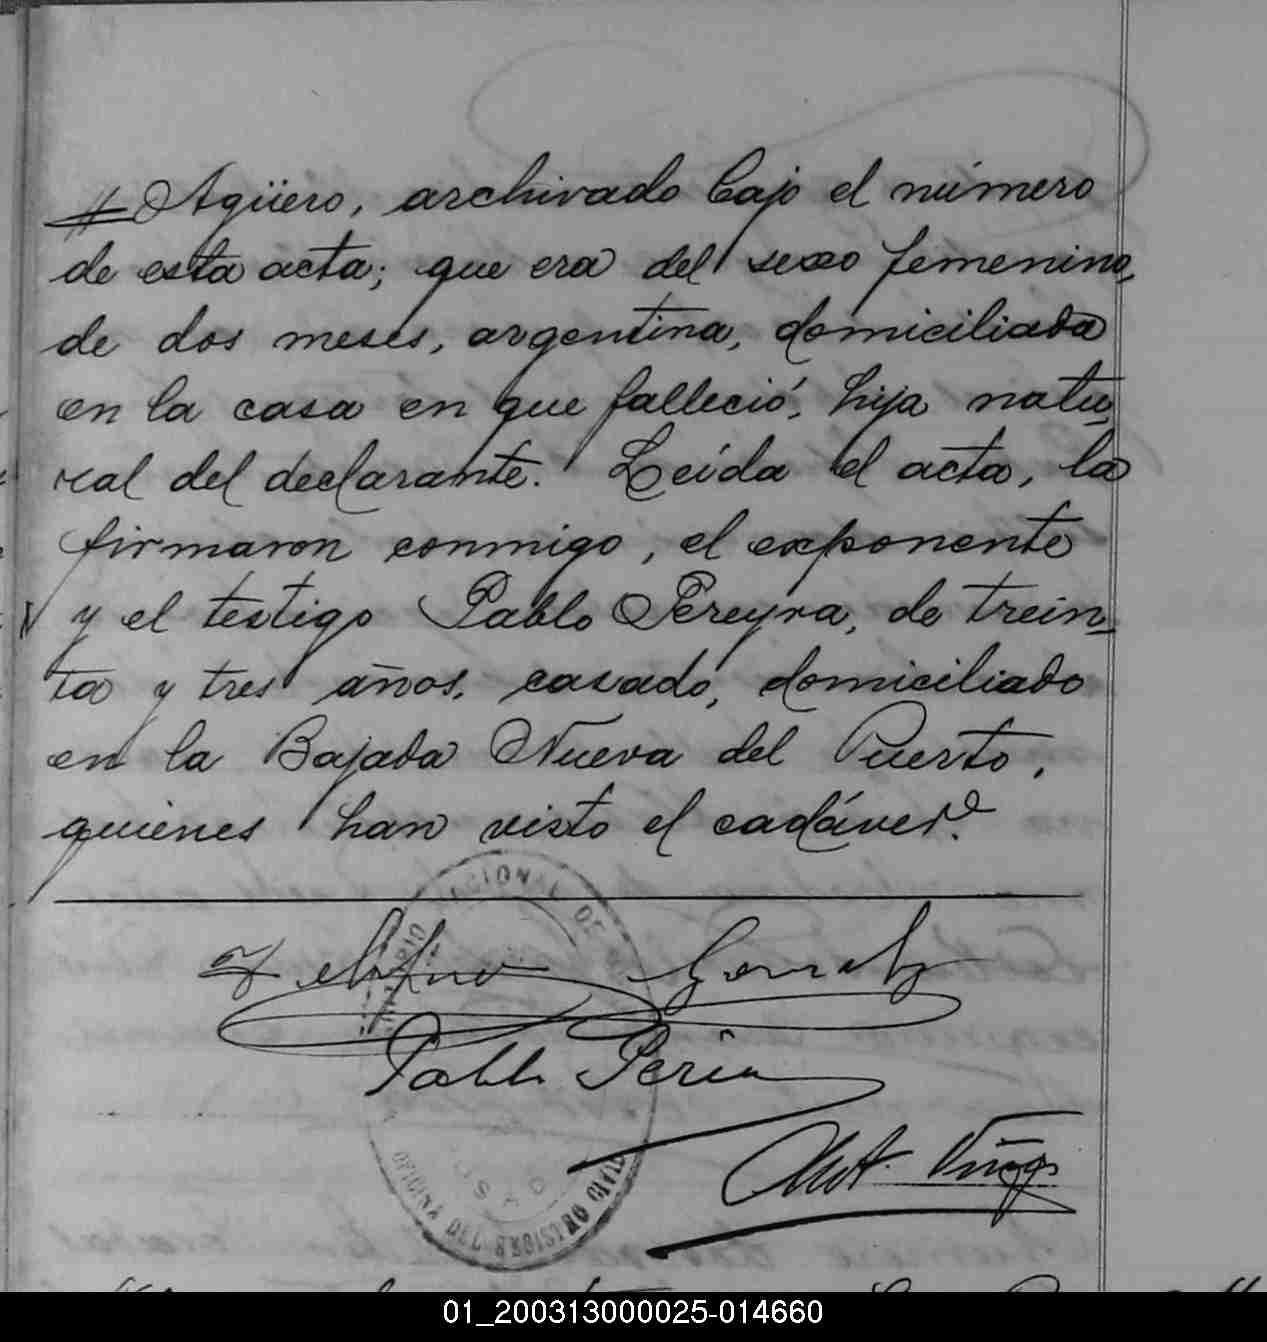 Agüero, archivado bajo el número
de esta acta; que era del sexo femenino,
de dos meses, argentina, domiciliada
en la casa en que falleció, hija natu-
ral del declarante. Leída el acta, la
firmaron conmigo, el exponente
y el testigo Pablo Pereyra, de trein-
ta y tres años, casado, domiciliado
en la Bajada Nueva del Puerto,
quienes han visto el cadáver.
Gonzalez
Pablo
OFICINA DEL REGISTRO CIVIL
01_200313000025-014660